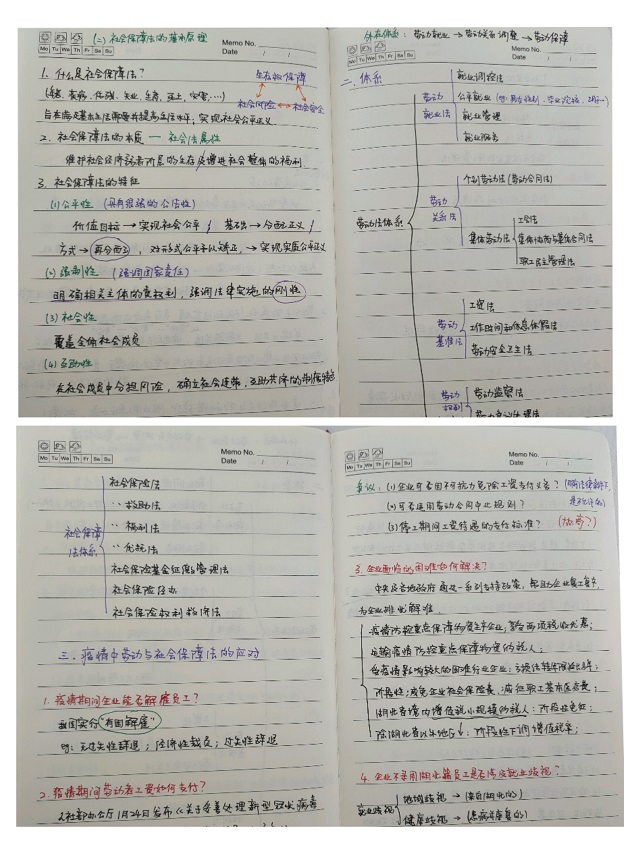 (二) 社会保障法的基本原理
Mo Tu We Th Fr Sa Su
Memo No.
Date / /
1. 什么是社会保障法?
生存权保障
(年老、疾病、伤残、失业、生育、死亡、灾害、…)
社会风险 ↔ 社会安全
实现社会公平正义
2. 社会保障法的本质 — 社会法属性
维护社会经济弱者阶层的生存及增进社会整体的福利
3. 社会保障法的特征
(1) 公平性 (具有很强的公法性)
价值目标 → 实现社会公平 / 基础 → 分配正义 /
方式 → 再分配, 对形式公平予以矫正, → 实现实质公平正义
(2) 强制性 (强调国家责任)
明确相关主体的责权利, 强调法律实施的刚性
(3) 社会性
覆盖全体社会成员
(4) 互助性
在社会成员中分担风险, 确立社会连带、互助共济的制度
外在体系: 劳动就业 → 劳动关系调整 → 劳动保障
Mo Tu We Th Fr Sa Su
Memo No.
Date / /
二、体系
劳动法体系
劳动就业法
就业调控法
公平就业
就业管理
就业服务
劳动关系法
个别劳动法 (劳动合同法)
集体劳动法
工会法
集体协商与集体合同法
职工民主管理法
劳动基准法
工资法
工作时间和休息休假法
劳动安全卫生法
劳动
劳动监察法
Mo Tu We Th Fr Sa Su
Memo No.
Date / /
社会保障法体系
社会保险法
‥ 救助法
‥ 福利法
‥ 优抚法
社会保险基金征缴管理法
社会保险经办
社会保险权利救济法
三、疫情中劳动与社会保障法的应对
1. 疫情期间企业能否解雇员工?
我国实行“有因解雇”
即: 无过失性辞退; 经济性裁员; 过失性辞退
2. 疫情期间劳动者工资如何支付?
人社部办公厅1月24日发布《关于妥善处理新型冠状病毒
Mo Tu We Th Fr Sa Su
Memo No.
Date / /
争议: (1) 企业可否因不可抗力免除工资支付义务?
(2) 可否适用劳动合同中止规则?
(3) 停工期间工资待遇的支付标准? (协商?)
3. 企业面临的困难如何解决?
中央及各地政府通过一系列支持政策, 帮助企业复工复产,
为企业排忧解难.
疫情防控重点保障物资生产企业, 享若两项税收优惠;
运输疫情防控重点保障物资的税人;
受疫情影响较大的困难行业企业: 亏损结转年限延长;
阶段性: 减免企业社会保险费, 减征职工基本医保费;
湖北省境内增值税小规模纳税人: 阶段性免征;
除湖北省以外地与: 阶段性下调增值税率;
4. 企业不录用湖北籍员工是否涉及就业歧视?
就业歧视
地域歧视 → (来自湖北的)
健康歧视 → (患病并康复的)